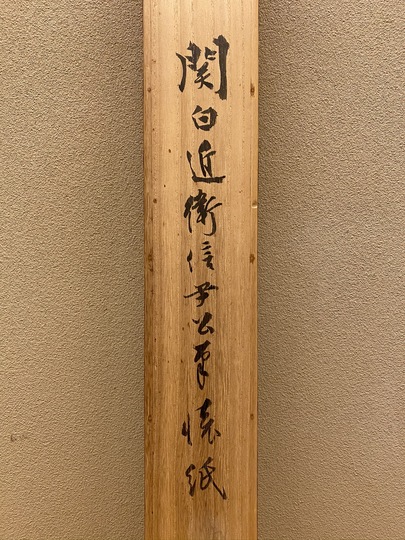 関白近衛信尹公筆懐紙